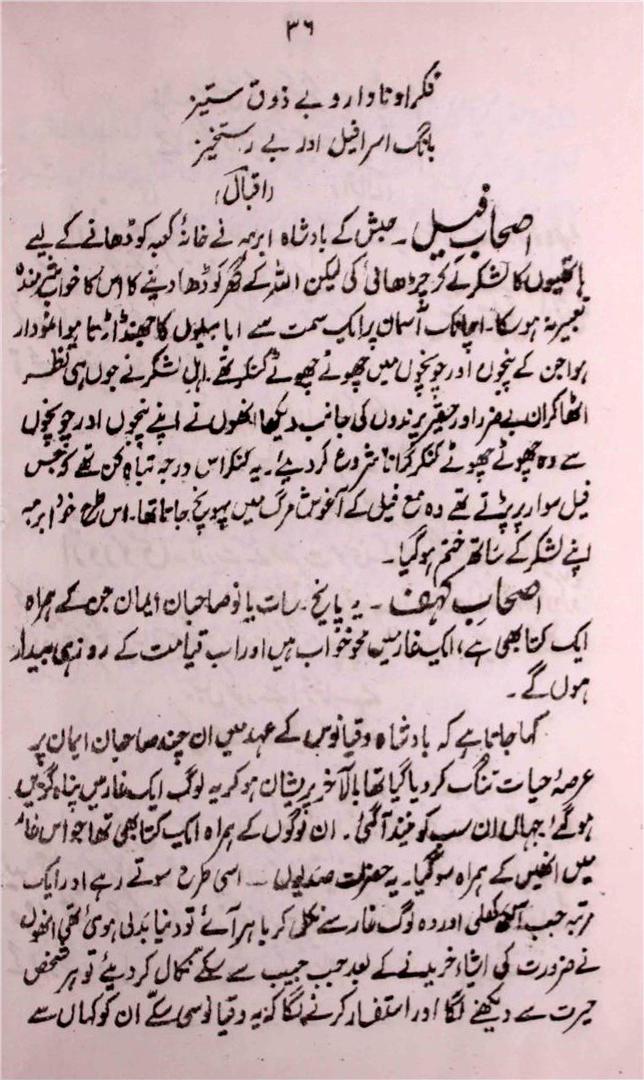 ۳۶
فکر او نادار و بے ذوق ستیز
بانگ اسرافیل اور بے رستخیز
(اقبال)
اصحاب فیل ۔ حبش کے بادشاہ ابرہہ نے خانۂ کعبہ کو ڈھانے کے لیے
ہاتھیوں کا لشکر لے کر چڑھائی کی لیکن اللہ کے گھر کو ڈھا دینے کا اس کا خواب شرمندہ
تعبیر نہ ہو سکا۔ اچانک آسمان پر ایک سمت سے ابابیلوں کا جھنڈ اڑتا ہوا نمودار
ہوا جن کے پنجوں اور چونچوں میں چھوٹے چھوٹے کنکر تھے۔ اہل لشکر نے جوں ہی نظر
اٹھا کر ان بے ضرر اور حقیر پرندوں کی جانب دیکھا انھوں نے اپنے پنجوں اور چونچوں
سے وہ چھوٹے چھوٹے کنکر گرانا شروع کر دیئے۔ یہ کنکر اس درجہ تباہ کن تھے کہ جس
فیل سوار پر پڑتے تھے وہ مع فیل کے آغوش مرگ میں پہونچ جاتا تھا۔ اس طرح خود ابرہہ
اپنے لشکر کے ساتھ ختم ہو گیا۔
اصحاب کہف ۔ یہ پانچ۔ سات یا نو صاحبان ایمان جن کے ہمراہ
ایک کتا بھی ہے، ایک غار میں محو خواب ہیں اور اب قیامت کے روز ہی بیدار
ہوں گے۔
کہا جاتا ہے کہ بادشاہ دقیانوس کے عہد میں ان چند صاحبان ایمان پر
عرصۂ حیات تنگ کر دیا گیا تھا بالآخر پریشان ہو کر یہ لوگ ایک غار میں پناہ گزیں
ہو گئے جہاں ان سب کو نیند آ گئی۔ ان لوگوں کے ہمراہ ایک کتا بھی تھا جو اس غار
میں انھیں کے ہمراہ سو گیا۔ یہ حضرات صدیوں ۔ اسی طرح سوتے رہے اور ایک
مرتبہ جب آنکھ کھلی اور وہ لوگ غار سے نکل کر باہر آئے تو دنیا بدلی ہوئی تھی انھوں
نے ضرورت کی اشیاء خریدنے کے بعد جب جیب سے سکے نکال کر دیئے تو ہر شخص
حیرت سے دیکھنے لگا اور استفسار کرنے لگا کہ یہ دقیانوسی سکے ان کو کہاں سے